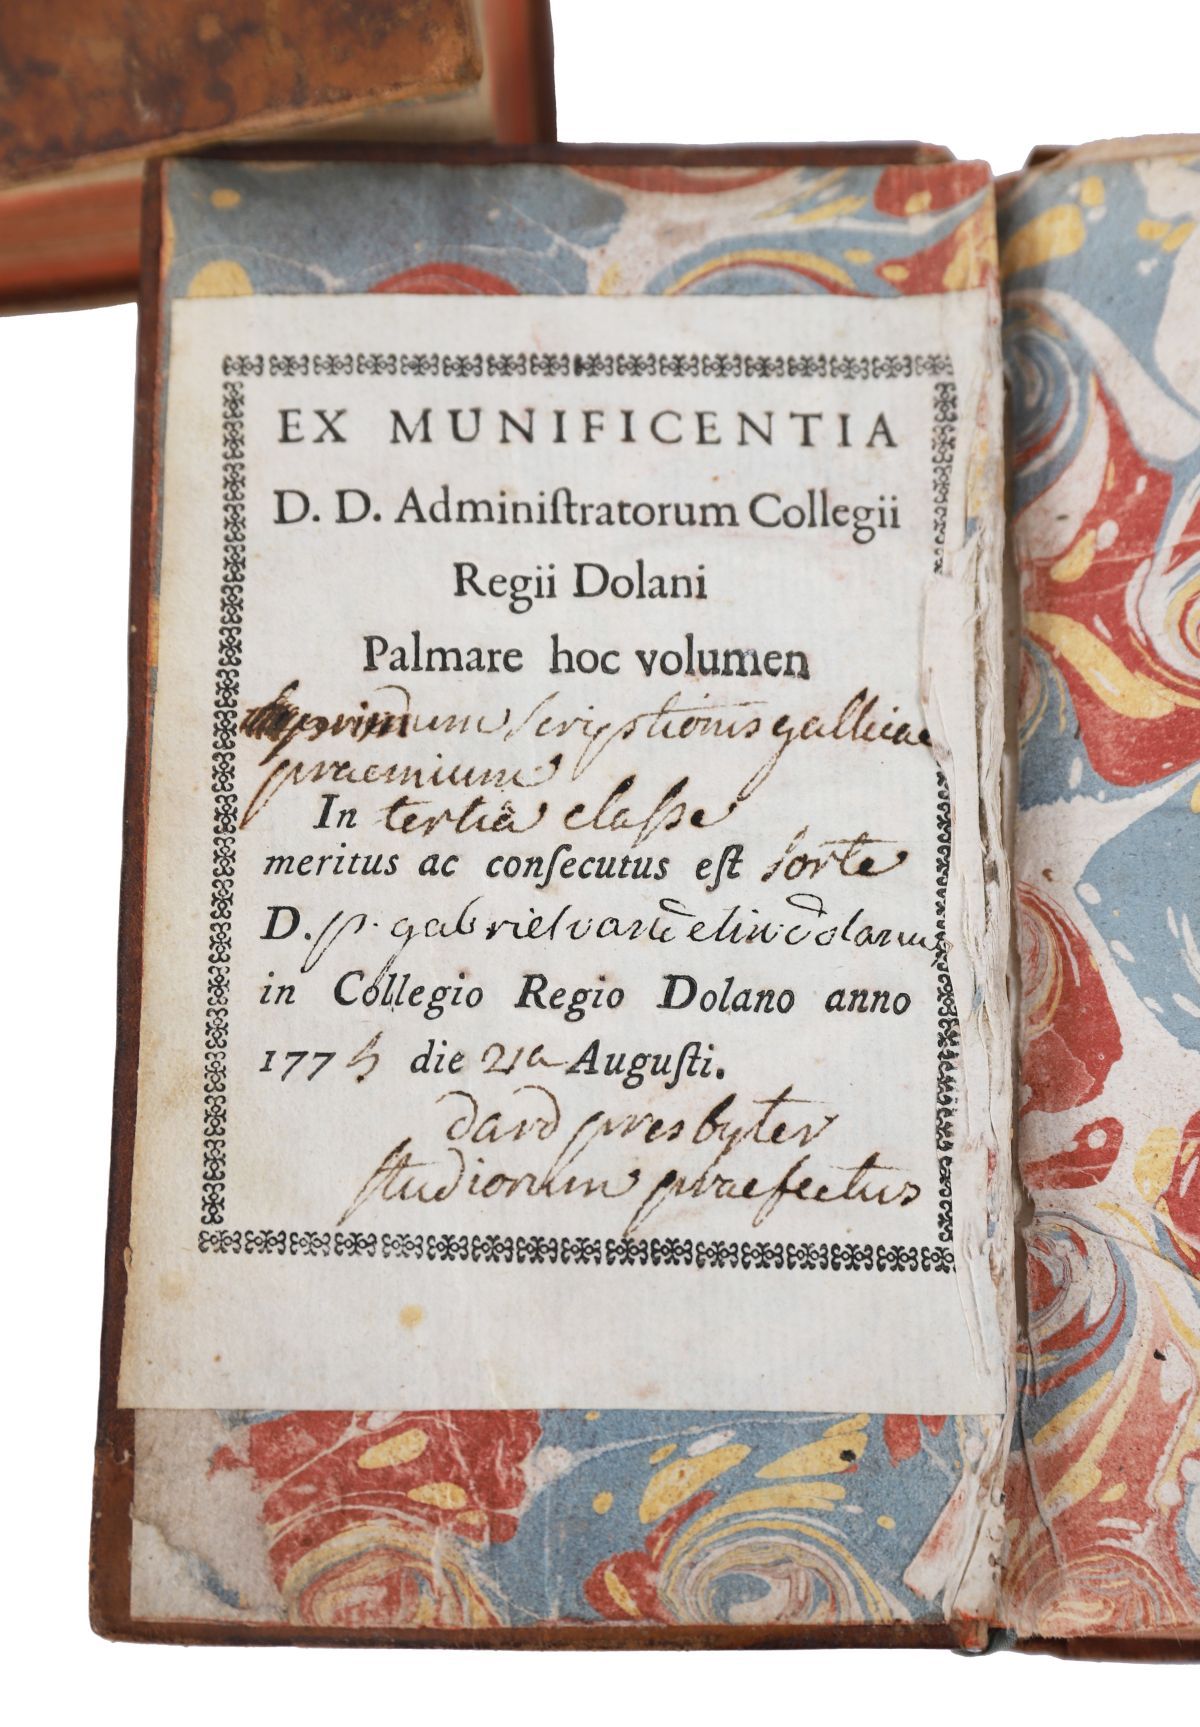 EX MUNIFICENTIA
D. D. Adminiſtratorum Collegii
Regii Dolani
Palmare hoc volumen
primum scriptionis gallicae
praemium
In tertiâ claſse
meritus ac conſecutus eſt sorte
D. p. gabriel dolanus
in Collegio Regio Dolano anno
177 die 21a Auguſti.
dard presbyter
studiorum praefectus